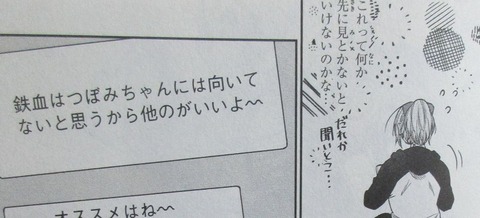 これって何か
先に見とかないと
いけないのかな…
だれか
聞いとこ…
鉄血はつぼみちゃんには向いて
ないと思うから他のがいいよ〜
オススメはね〜